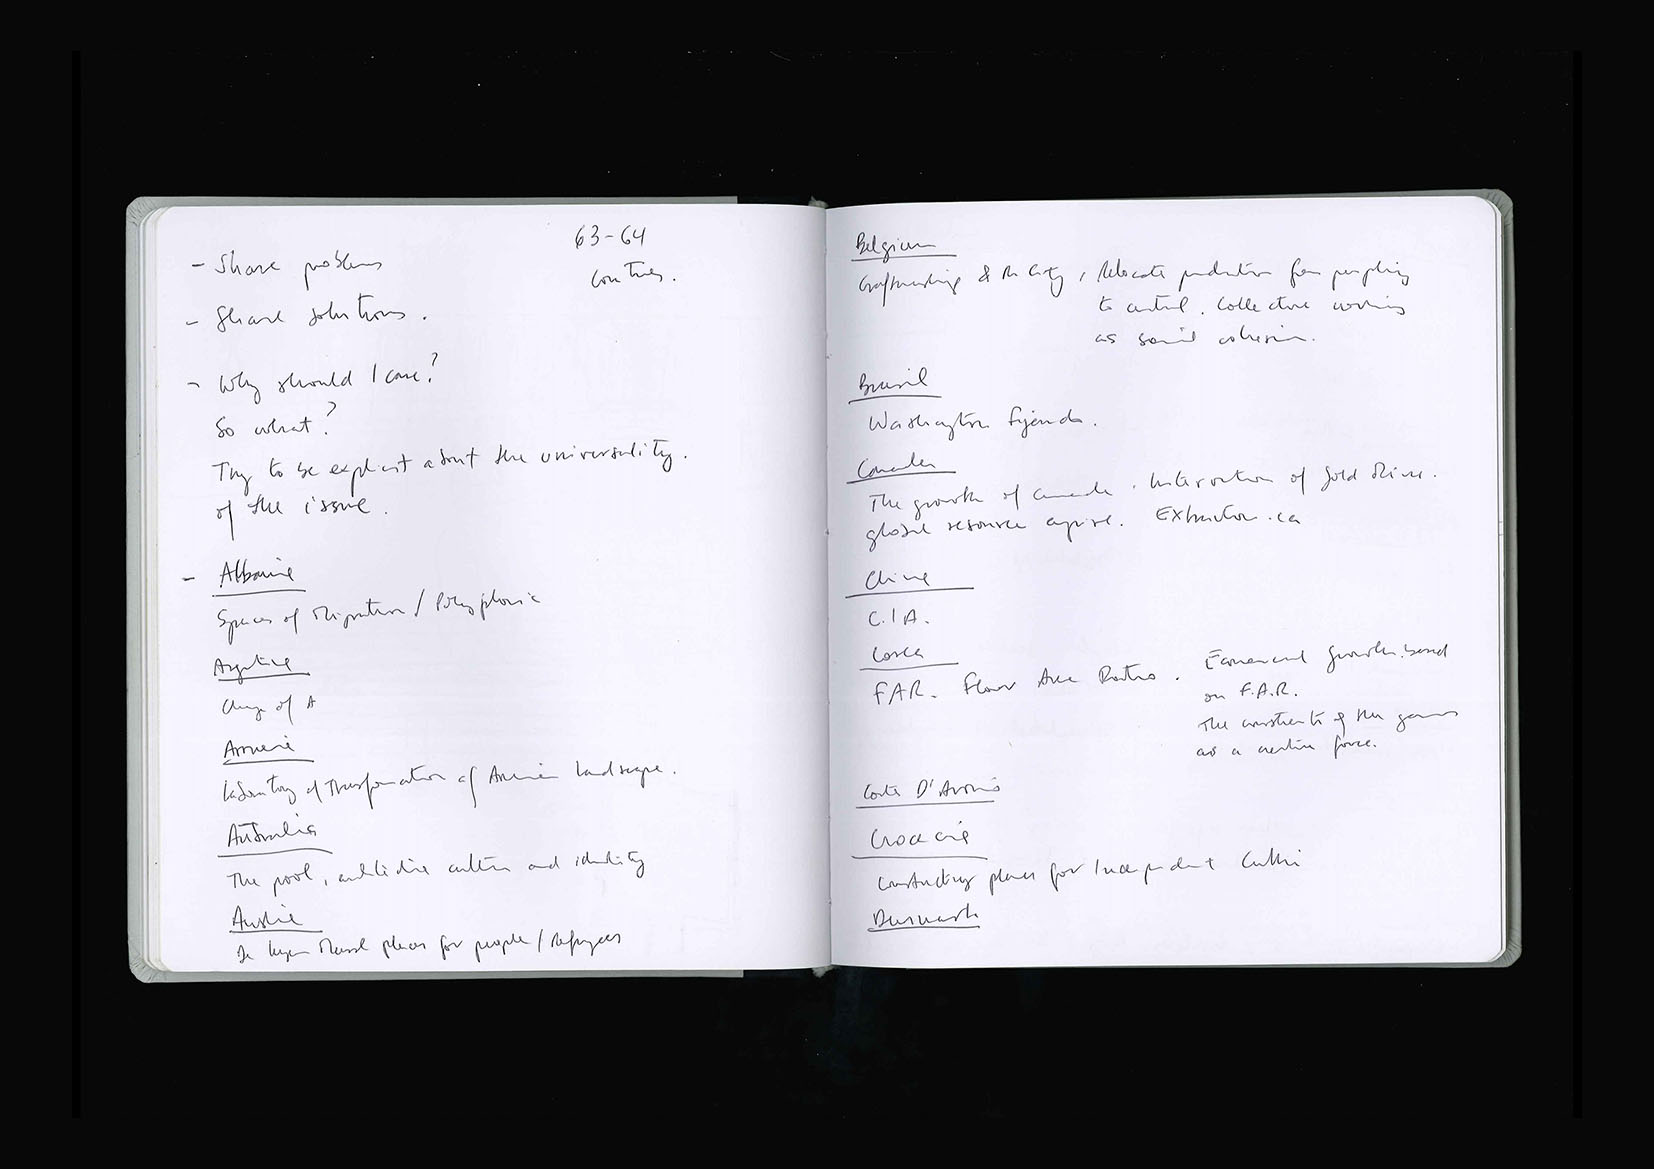 63-64
countries.
- Share problems
- Share solutions.
- Why should I care?
So what?
Try to be explicit about the universality.
of the issue.
- Albanie
Spaces of Migration / Polyphonic
Argentine
of A
Armenie
Laboratory of Transformation of Armenian Landscape.
Australia
The pool, culture and identity
Austrie
places for people / Refugees
Belgium
Craftmanship & the City, Relocate production from periphery
to central. Collective working
as social cohesion.
Brasil
Washington Fajardo.
Canada
The growth of canada. Intersection of Gold Mine.
global resource empire. Extraction.ca
Chine
C.I.A.
Corea
FAR. Floor Area Ratio. Economical Growth based
on F.A.R.
The constraints of the game
as a creative force.
Croacie
Constructing places for Independent Culture
Denmark